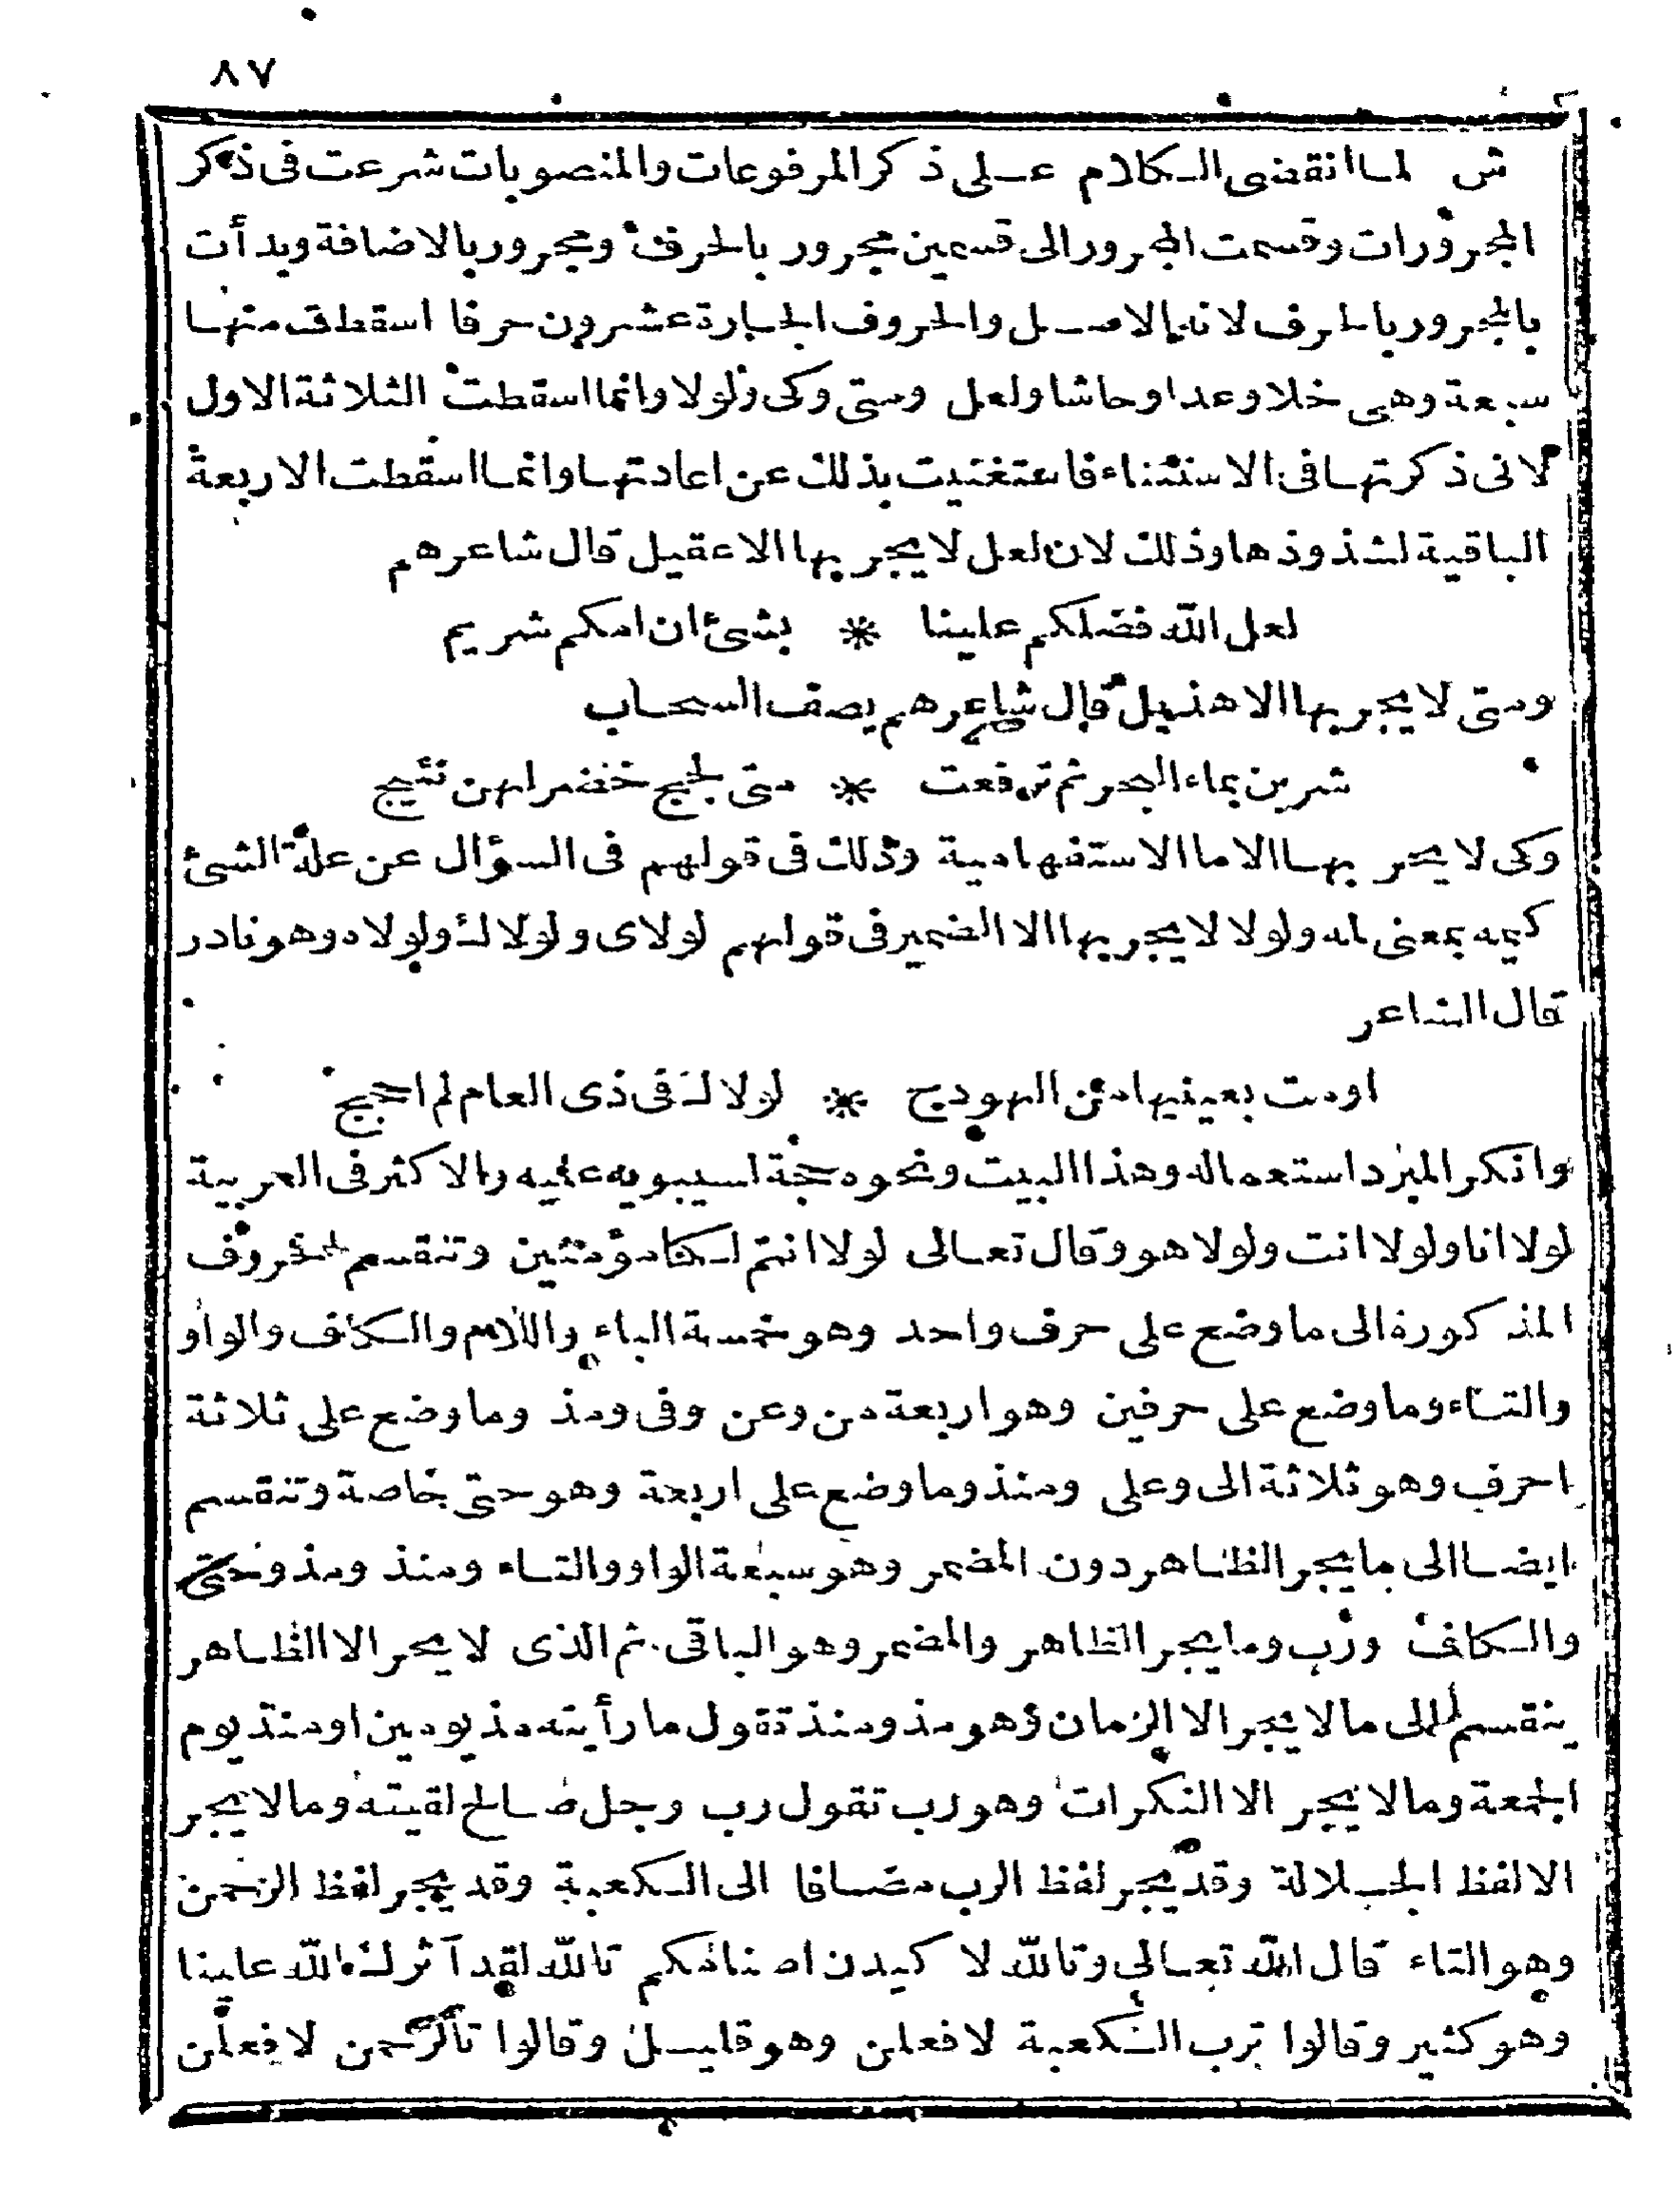 ٨٧
ش لما انقضى الكلام على ذكر المرفوعات والمنصوبات شرعت فى ذكر
المجرورات وقسمت المجرور الى قسمين مجرور بالحرف ومجرور بالاضافة وبدأت
بالمجرور بالحرف لانه الاصل والحروف الجارة عشرون حرفا اسقطت منها
سبعة وهى خلا وعدا وحاشا ولعل ومتى وكى ولولا وانما اسقطت الثلاثة الاول
لانى ذكرتها فى الاستثناء فاستغنيت بذلك عن اعادتها وانما اسقطت الاربعة
الباقية لشذوذها وذلك لان لعل لا يجر بها الا عقيل قال شاعرهم
لعل الله فضلكم علينا * بشئ ان امكم شريم
ومتى لا يجر بها الا هذيل قال شاعرهم يصف السحاب
شربن بماء البحر ثم ترفعت * متى لجج خضر لهن نئيج
وكى لا يجر بها الا ما الاستفهامية وذلك فى قولهم فى السؤال عن علة الشئ
كيمه بمعنى لمه ولولا لا يجر بها الا الضمير فى قولهم لولاى ولولاك ولولاه وهو نادر
قال الشاعر
اومت بعينيها من الهودج * لولاك فى ذى العام لم احجج
وانكر المبرد استعماله وهذا البيت ونحوه حجة لسيبويه عليه والاكثر فى العربية
لولا انا ولولا انت ولولا هو وقال تعالى لولا انتم لكنا مؤمنين وتنقسم الحروف
المذكورة الى ما وضع على حرف واحد وهو خمسة الباء واللام والكاف والواو
والتاء وما وضع على حرفين وهو اربعة من وعن وفى ومذ وما وضع على ثلاثة
احرف وهو ثلاثة الى وعلى ومنذ وما وضع على اربعة وهو حتى خاصة وتنقسم
ايضا الى ما يجر الظاهر دون المضمر وهو سبعة الواو والتاء ومنذ ومذ وحتى
والكاف ورب وما يجر الظاهر والمضمر وهو الباقى ثم الذى لا يجر الا الظاهر
ينقسم الى ما لا يجر الا الزمان وهو مذ ومنذ تقول ما رأيته مذ يومين او منذ يوم
الجمعة وما لا يجر الا النكرات وهو رب تقول رب رجل صالح لقيته وما لا يجر
الا لفظ الجلالة وقد يجر لفظ الرب مضافا الى الكعبة وقد يجر لفظ الرحمن
وهو التاء قال الله تعالى وتالله لا كيدن اصنامكم تالله لقد آثرك الله علينا
وهو كثير وقالوا ترب الكعبة لافعلن وهو قليل وقالوا تالرحمن لافعلن